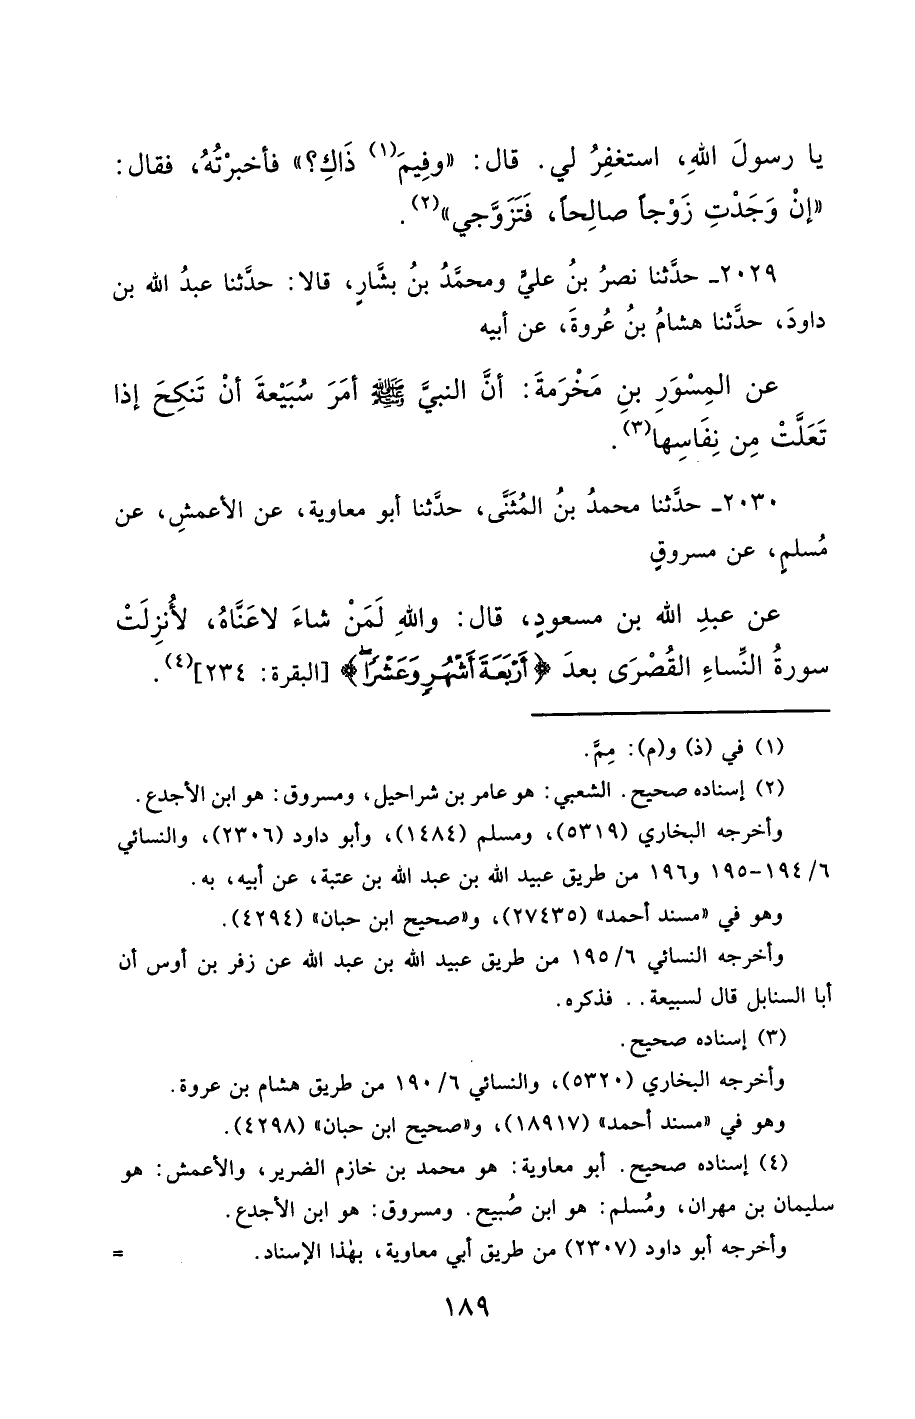 يا رسولَ اللهِ، استغفِرُ لي. قال: «وفِيمَ(١) ذَاكِ؟» فأخبرْتُهُ، فقال:
«إنْ وَجَدْتِ زَوْجاً صالِحاً، فَتَزَوَّجي»(٢).
٢٠٢٩ـ حدَّثنا نصرُ بنُ عليٍّ ومحمَّدُ بنُ بشَّارٍ، قالا: حدَّثنا عبدُ الله بن
داودَ، حدَّثنا هشامُ بنُ عُروةَ، عن أبيه
عن المِسْوَرِ بنِ مَخْرَمةَ: أنَّ النبيَّ ﷺ أمَرَ سُبَيْعةَ أنْ تَنكِحَ إذا
تَعَلَّتْ مِن نِفَاسِها(٣).
٢٠٣٠ـ حدَّثنا محمدُ بنُ المُثَنَّى، حدَّثنا أبو معاوية، عن الأعمشِ، عن
مُسلمٍ، عن مسروقٍ
عن عبدِ الله بن مسعودٍ، قال: واللهِ لَمَنْ شاءَ لاعَنَّاهُ، لأُنزِلَتْ
سورةُ النِّساءِ القُصْرَى بعدَ ﴿أَرْبَعَةَ أَشْهُرٍ وَعَشْرًا﴾ [البقرة: ٢٣٤](٤).
(١) في (ذ) و(م): مِمَّ.
(٢) إسناده صحيح. الشعبي: هو عامر بن شراحيل، ومسروق: هو ابن الأجدع.
وأخرجه البخاري (٥٣١٩)، ومسلم (١٤٨٤)، وأبو داود (٢٣٠٦)، والنسائي
٦/ ١٩٤-١٩٥ و١٩٦ من طريق عبيد الله بن عبد الله بن عتبة، عن أبيه، به.
وهو في «مسند أحمد» (٢٧٤٣٥)، و«صحيح ابن حبان» (٤٢٩٤).
وأخرجه النسائي ٦/ ١٩٥ من طريق عبيد الله بن عبد الله عن زفر بن أوس أن
أبا السنابل قال لسبيعة.. فذكره.
(٣) إسناده صحيح.
وأخرجه البخاري (٥٣٢٠)، والنسائي ٦/ ١٩٠ من طريق هشام بن عروة.
وهو في «مسند أحمد» (١٨٩١٧)، و«صحيح ابن حبان» (٤٢٩٨).
(٤) إسناده صحيح. أبو معاوية: هو محمد بن خازم الضرير، والأعمش: هو
سليمان بن مهران، ومُسلم: هو ابن صُبيح. ومسروق: هو ابن الأجدع.
وأخرجه أبو داود (٢٣٠٧) من طريق أبي معاوية، بهٰذا الإسناد. =
١٨٩